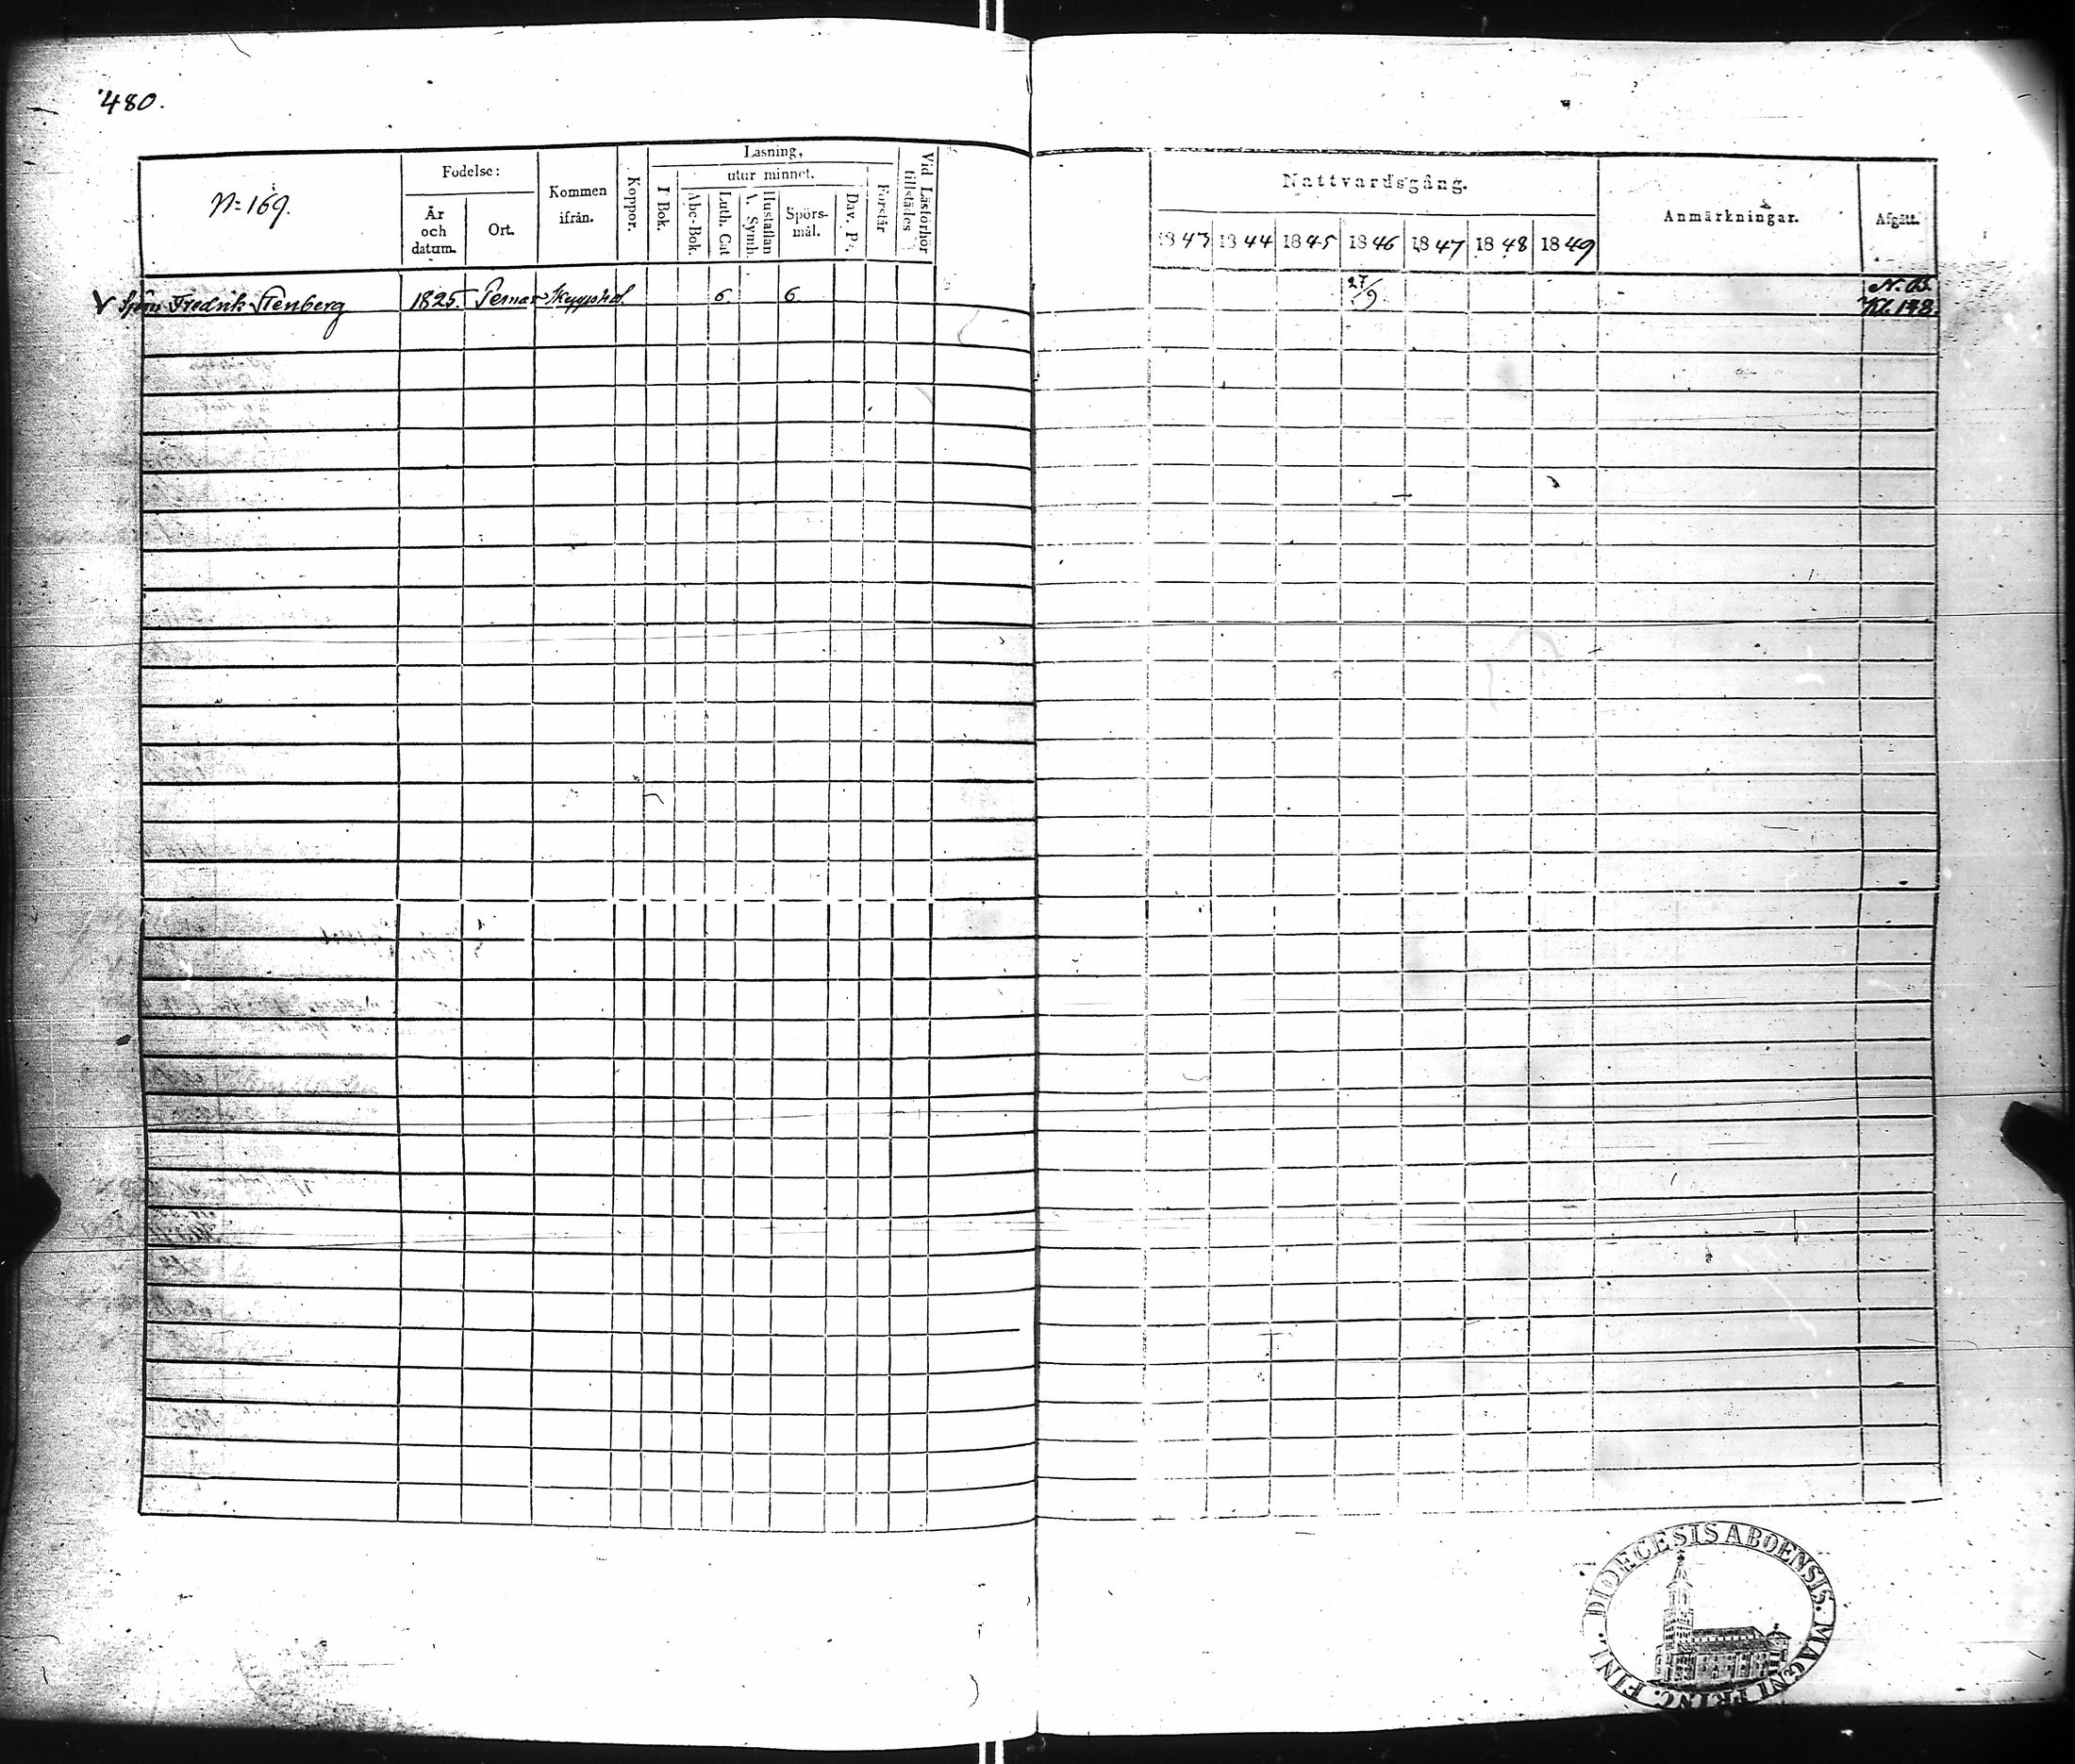 480.
N:169.
Födelse:
År och datum.
Ort.
Kommen ifrån.
Koppor.
Läsning,
utur minnet.
I Bok.
Abc-Bok.
Luth. Cat
Hustaflan A. Symb.
Spörs-mål.
Dav. Ps.
Förstår
Vid Läsförhör tillstädes
Nattvardsgång.
1843 1844 1845 1846 1847 1848 1849
Anmärkningar.
Afgått.
V Fredrik Stenberg 1825. Pemar 6 6 27/9
148.
DIOECESIS ABOENSIS. MAGNI PRINC. FINL.